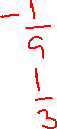 -1/9
1/3